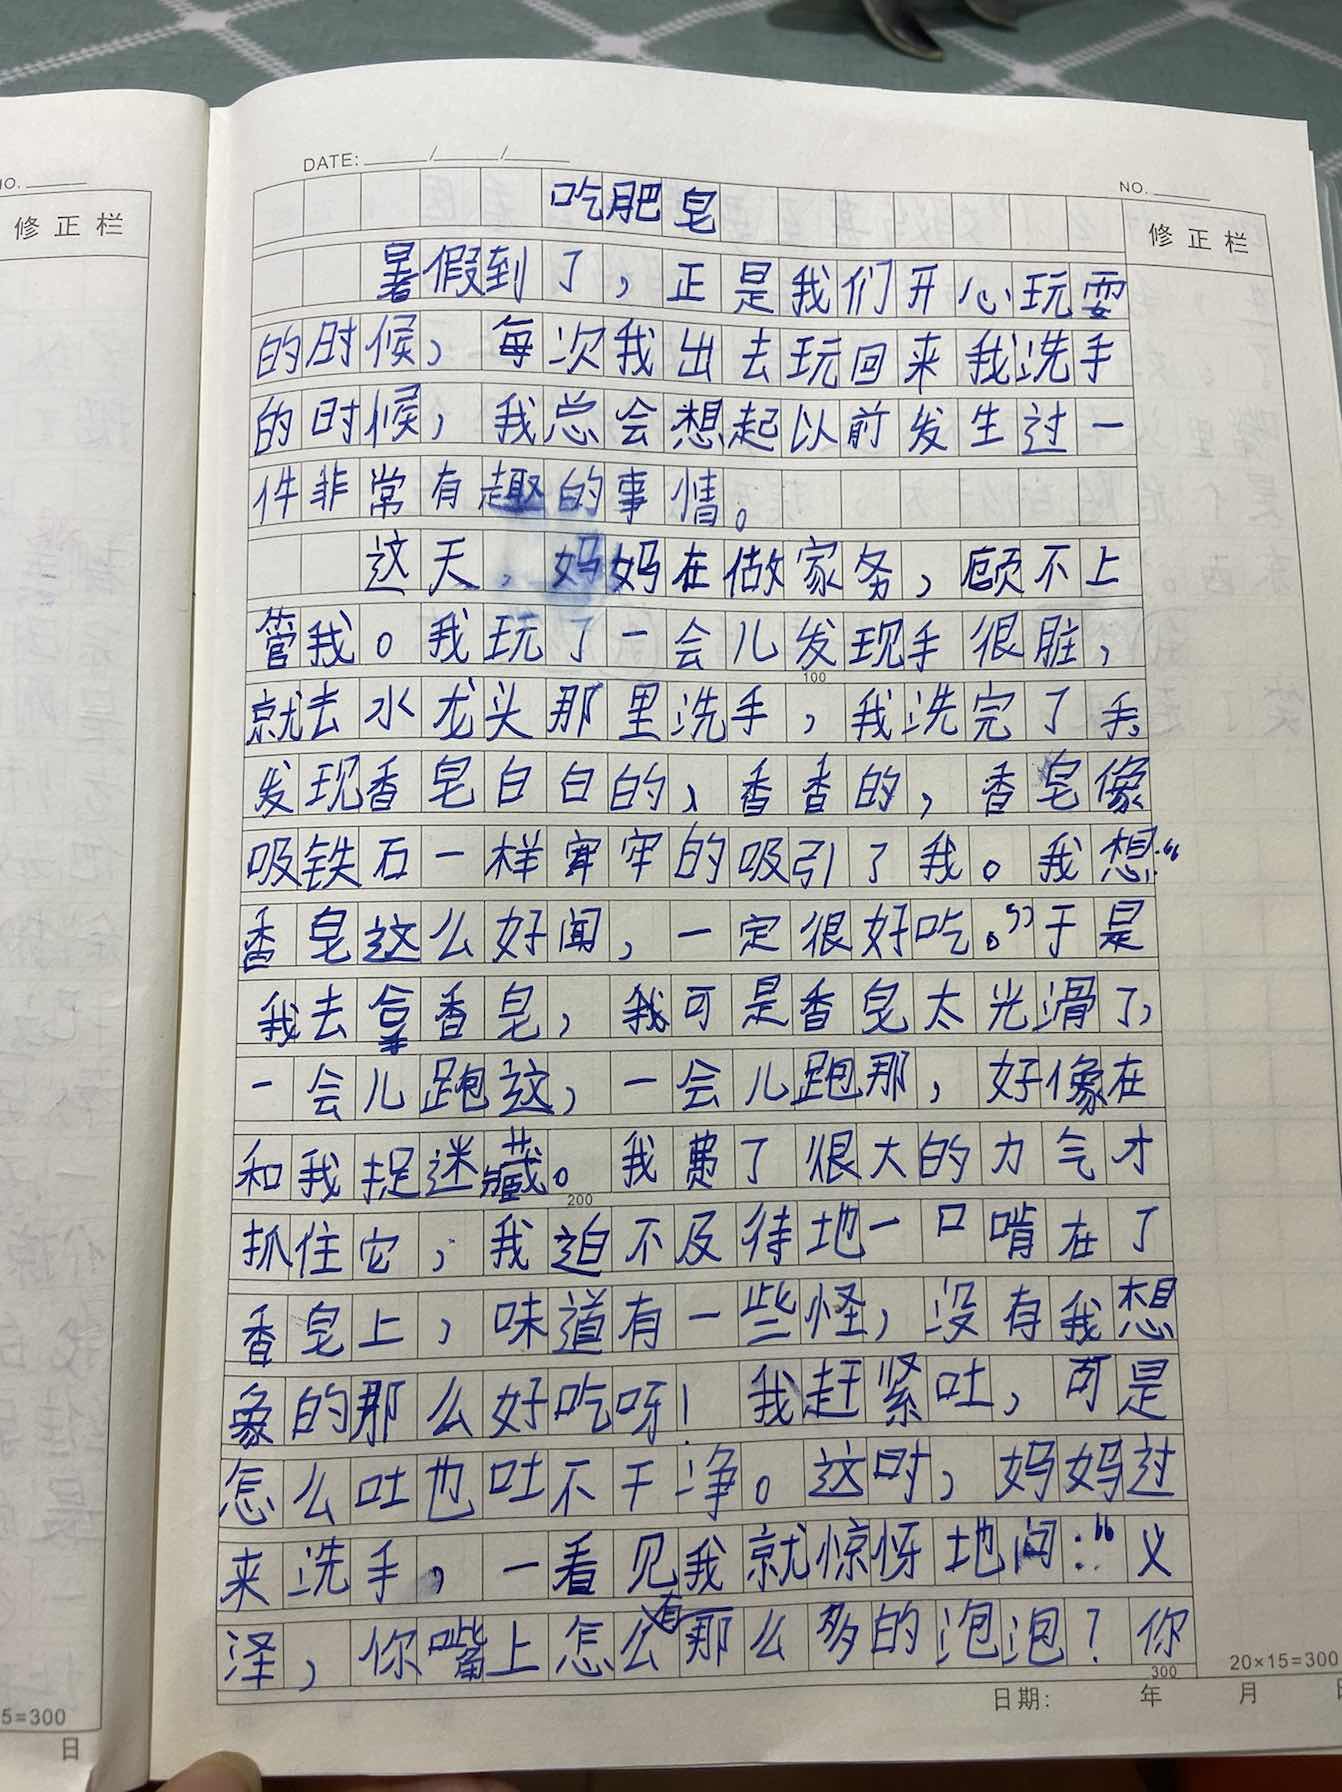 DATE: ____/____/____
NO. ____
NO. ____
修正栏
修正栏
吃肥皂
暑假到了，正是我们开心玩耍
的时候，每次我出去玩回来我洗手
的时候，我总会想起以前发生过一
件非常有趣的事情。
这天，妈妈在做家务，顾不上
管我。我玩了一会儿发现手很脏，
就去水龙头那里洗手，我洗完了手。
发现香皂白白的、香香的，香皂像
吸铁石一样牢牢的吸引了我。我想：“
香皂这么好闻，一定很好吃。”于是
我去拿香皂，我可是香皂太光滑了，
一会儿跑这，一会儿跑那，好像在
和我捉迷藏。我费了很大的力气才
抓住它，我迫不及待地一口啃在了
香皂上，味道有一些怪，没有我想
象的那么好吃呀！我赶紧吐，可是
怎么吐也吐不干净。这时，妈妈过
来洗手，一看见我就惊讶地问：“义
泽，你嘴上怎么有那么多的泡泡？你
100
200
300
20×15=300
日期： 年 月 日
5=300
日